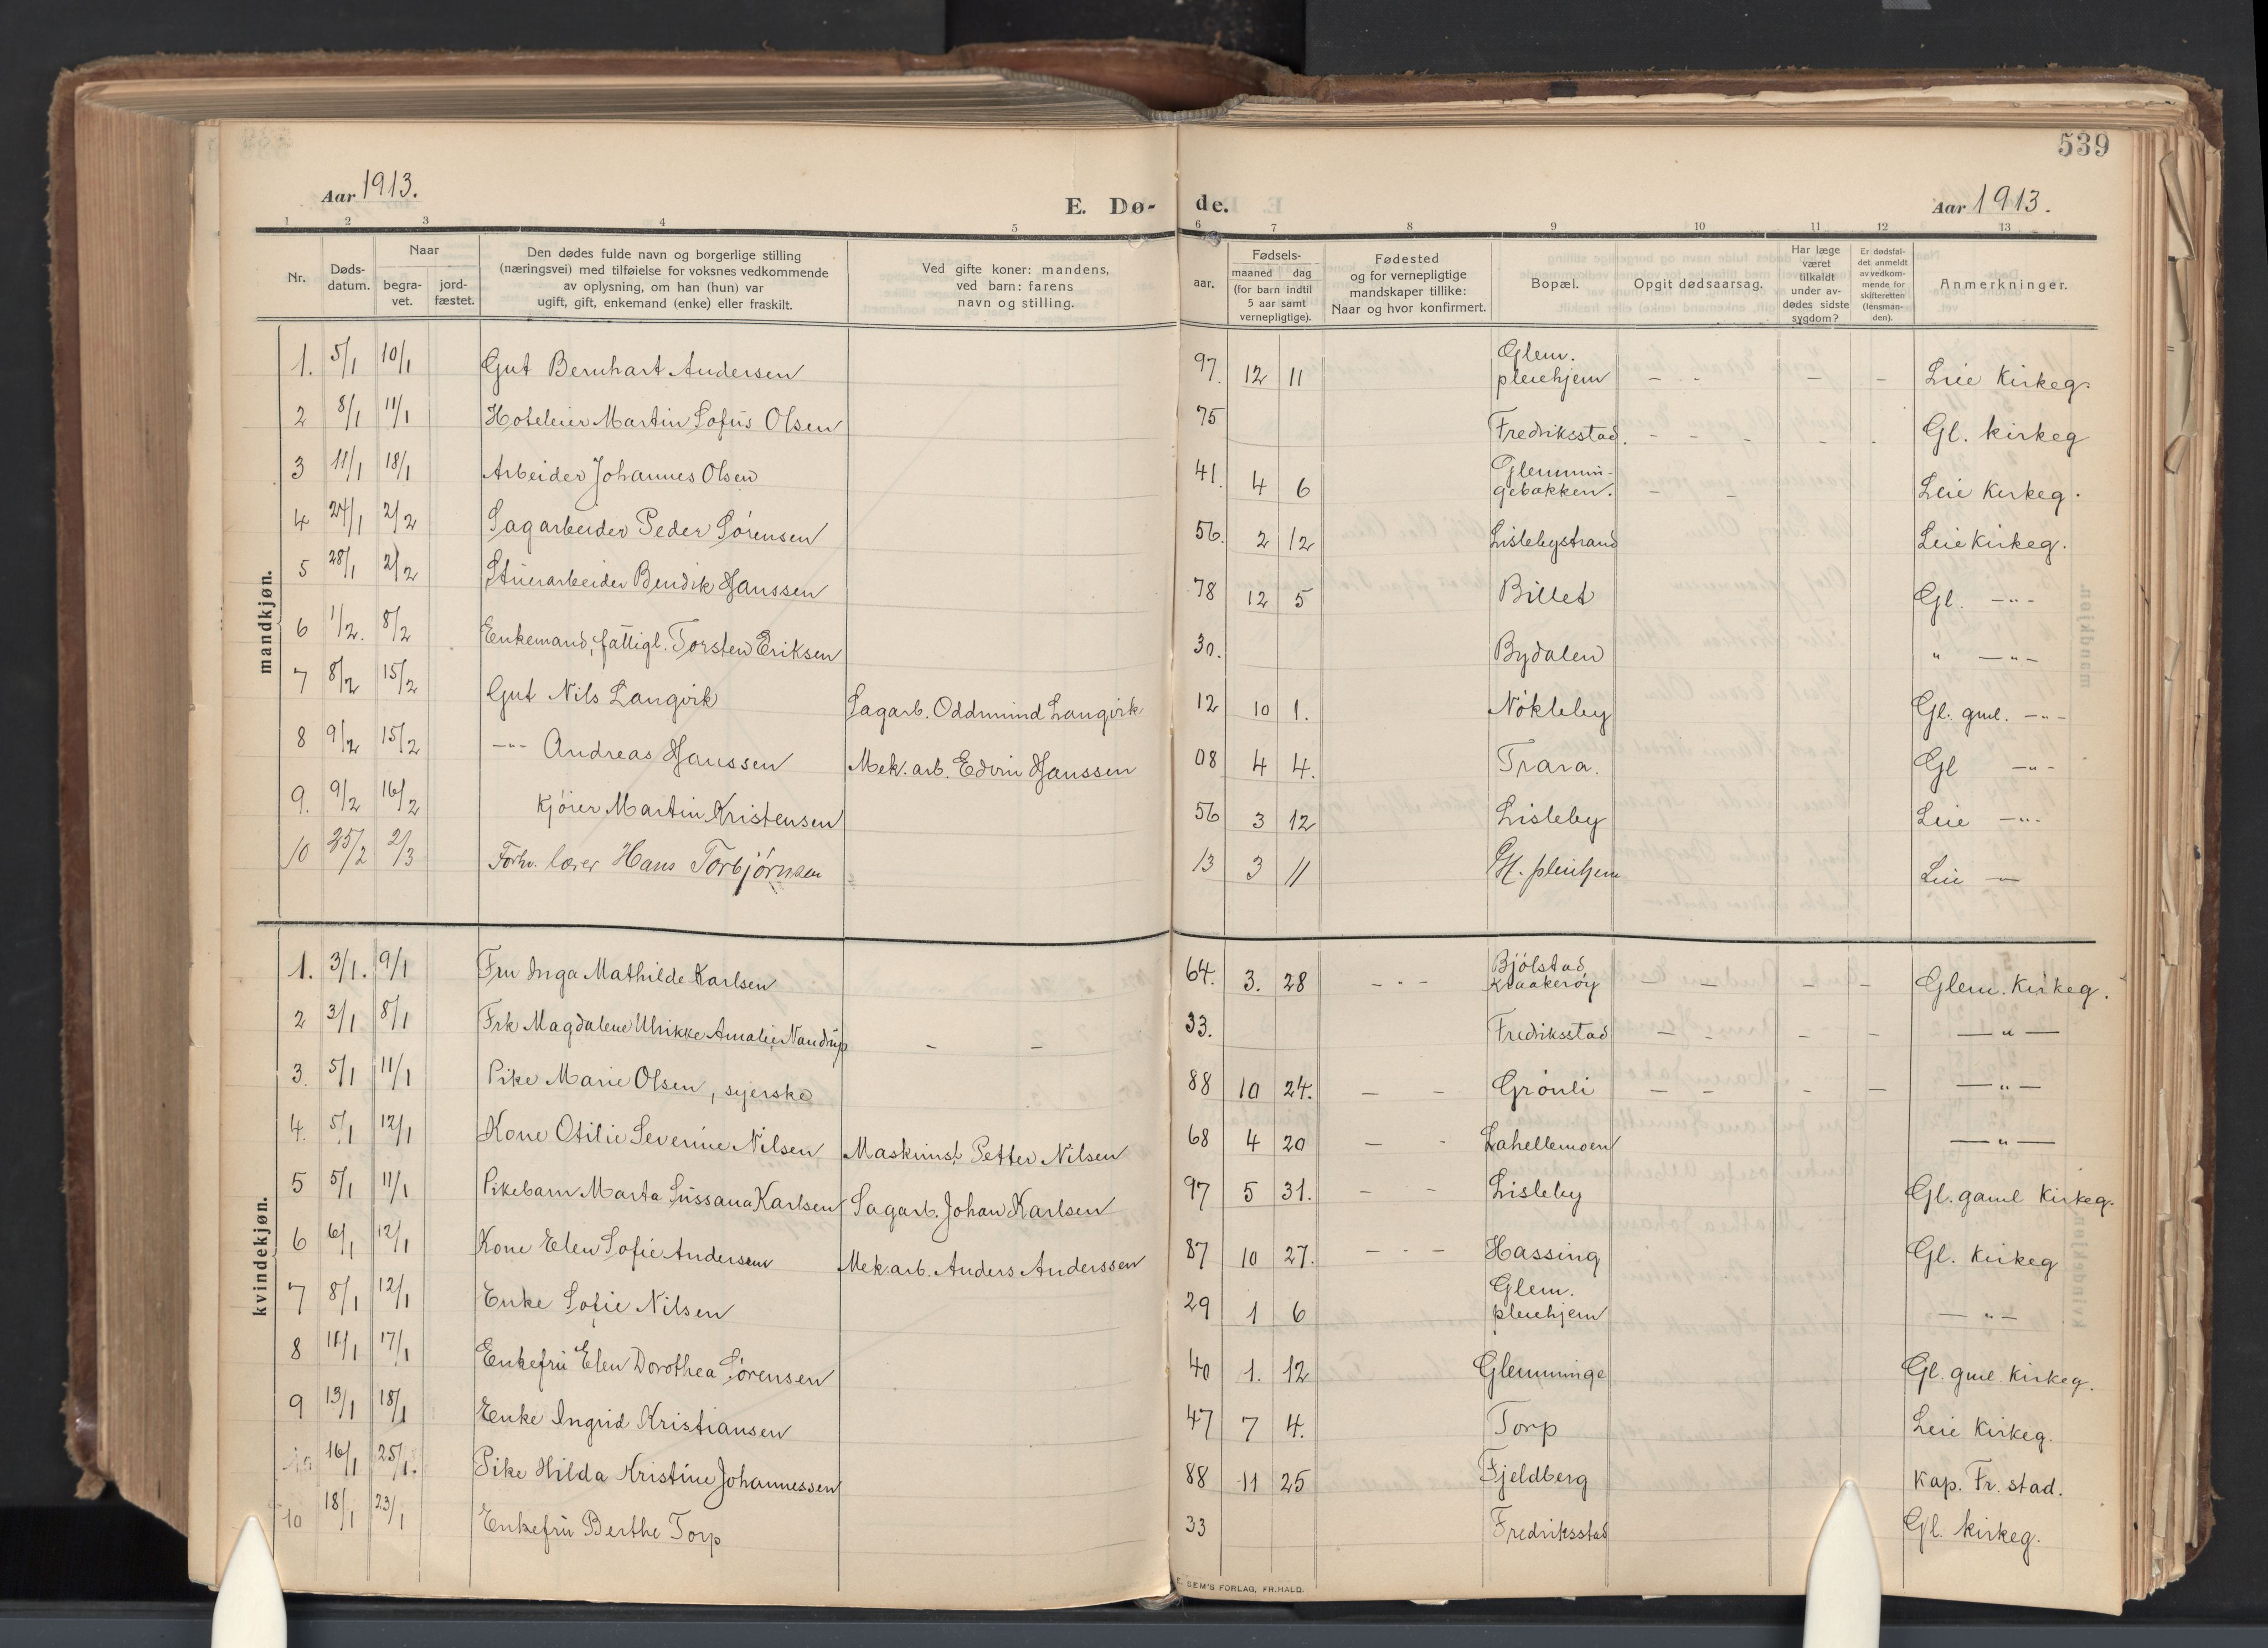 539
Aar 1913.
E. Dø- de.
Aar 1913.
1 2 3 4 5 6 7 8 9 10 11 12 13
Nr.
Døds-
datum.
Naar
begra-
vet.
jord-
fæstet.
Den dødes fulde navn og borgerlige stilling
(næringsvei) med tilføielse for voksnes vedkommende
av oplysning, om han (hun) var
ugift, gift, enkemand (enke) eller fraskilt.
Ved gifte koner: mandens,
ved barn: farens
navn og stilling.
aar.
Fødsels-
maaned dag
(for barn indtil
5 aar samt
vernepligtige).
Fødested
og for vernepligtige
mandskaper tillike:
Naar og hvor konfirmert.
Bopæl.
Opgit dødsaarsag.
Har læge
været
tilkaldt
under av-
dødes sidste
sygdom?
Er dødsfal-
det anmeldt
av vedkom-
mende for
skifteretten
(lensman-
den).
Anmerkninger.
mandkjøn.
1. 5/1 10/1 Gut Bernhart Andersen 97. 12 11 Glem. pleiehjem - - - - Leie Kirkeg.
2 8/1 11/1 Hoteleier Martin Sofus Olsen 75 Fredriksstad. - - - - - Gl. kirkeg
3 11/1 18/1 Arbeider Johannes Olsen 41. 4 6 Glemmin- gebakken. - - Leie Kirkeg.
4 24/1 2/2 Sagarbeider Peder Sörensen 56. 2 12 Lislebystrand Leie Kirkeg.
5 28/1 2/2 Stuerarbeider Bendik Hanssen 78 12 5 Billet Gl. -"-
6 1/2. 8/2 Enkemand, fattigl. Torsten Eriksen 30. Bydalen " -"-
7 8/2 15/2 Gut Nils Langvik Sagarb. Oddmund Langvik 12 10 1. Nökleby Gl. gml. -"-
8 9/2 15/2 -"- Andreas Hanssen Mek. arb. Edvin Hanssen 08 4 4. Trara. Gl -"-
9. 9/2 16/2 Kjörer Martin Kristensen 56 3 12 Lisleby Leie -"-
10 25/2 2/3 Forhv. lærer Hans Torbjörnsen 13 3 11 Gl. pleiehjem Leie -
kvindekjøn.
1. 3/1. 9/1 Fru Inga Mathilde Karlsen 64. 3. 28 - " - Bjölstad Kraakeröy - - - - Glem. Kirkeg.
2 3/1 8/1 Frk Magdalene Ulrikke Amalie Nandrup - - 33. Fredriksstad - - - - -"-
3. 5/1 11/1 Pike Marie Olsen, syerske 88 10 24. - - Grönli - - - - -"-
4. 5/1 12/1 Kone Otilie Severine Nilsen Maskinist Petter Nilsen 68 4 20 - - Lahellemoen -"-
5 5/1 11/1 Pikebarn Marta Sussana Karlsen Sagarb. Johan Karlsen 97 5 31. - - Lisleby Gl. gaml Kirkeg.
6 6/1 12/1 Kone Elen Sofie Anderssen Mek. arb. Anders Anderssen 87 10 27. - " - Hassing Gl. Kirkeg
7 8/1 12/1 Enke Sofie Nilsen 29 1 6 Glem. pleiehjem -"-
8 11/1 17/1 Enkefru Elen Dorothea Sörensen 40 1. 12 Glemminge Gl. gml Kirkeg.
9 13/1 18/1 Enke Ingrid Kristiansen 47 7 4. Torp Leie Kirkeg.
10 16/1 25/1. Pike Hilda Kristine Johannessen 88 11 25 Fjeldberg Kap. Fr. stad.
10 18/1 23/1 Enkefru Berthe Torp 33 Fredriksstad Gl. kirkeg.
SEM'S FORLAG, FR.HALD.